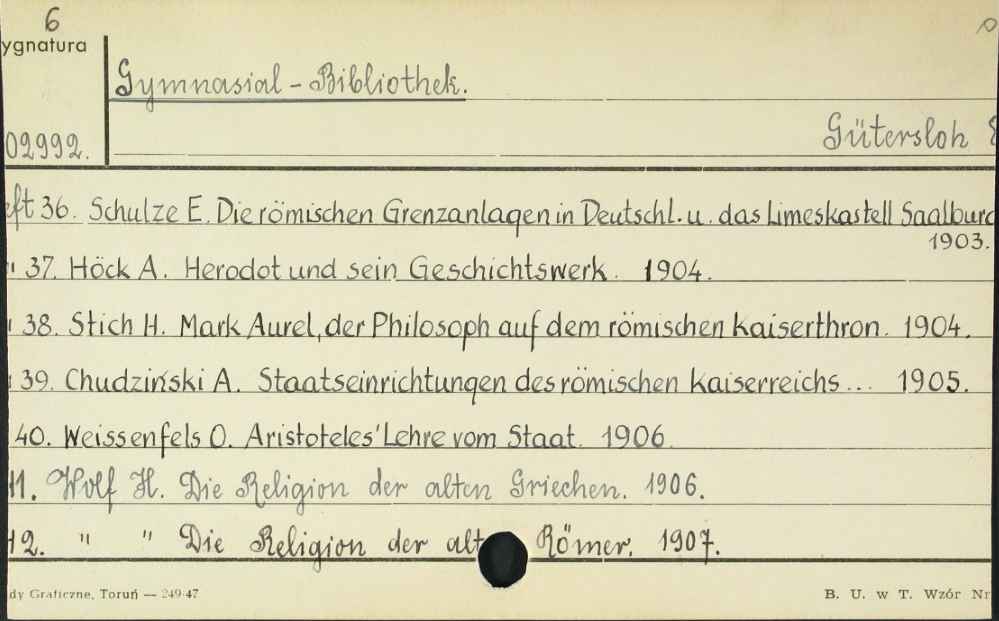 6
ygnatura
Gymnasial - Bibliothek.
02992.
Gütersloh
eft 36. Schulze E. Die römischen Grenzanlagen in Deutschl. u. das Limeskastell Saalburg
1903.
" 37. Höck A. Herodot und sein Geschichtswerk. 1904.
" 38. Stich H. Mark Aurel, der Philosoph auf dem römischen Kaiserthron. 1904.
" 39. Chudziński A. Staatseinrichtungen des römischen Kaiserreichs... 1905.
40. Weissenfels O. Aristoteles' Lehre vom Staat. 1906.
41. Wolf H. Die Religion der alten Griechen. 1906.
42. " " Die Religion der alt Römer. 1907.
dy Graficzne, Toruń — 249/47
B. U. w T. Wzór Nr